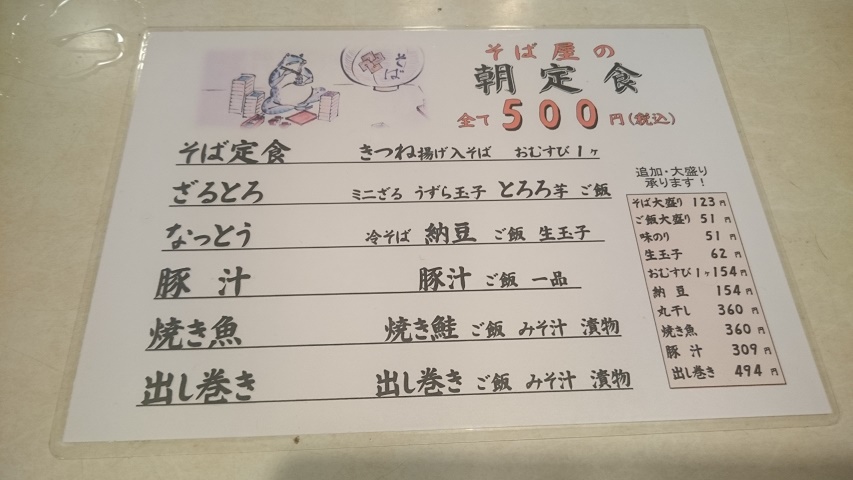 そば
そば屋の
朝定食
全て500円(税込)
そば定食 きつね揚げ入そば おむすび1ヶ
ざるとろ ミニざる うずら玉子 とろろ芋 ご飯
なっとう 冷そば 納豆 ご飯 生玉子
豚汁 豚汁 ご飯 一品
焼き魚 焼き鮭 ご飯 みそ汁 漬物
出し巻き 出し巻き ご飯 みそ汁 漬物
追加・大盛り
承ります!
そば大盛り 123円
ご飯大盛り 51円
味のり 51円
生玉子 62円
おむすび1ヶ154円
納豆 154円
丸干し 360円
焼き魚 360円
豚汁 309円
出し巻き 494円